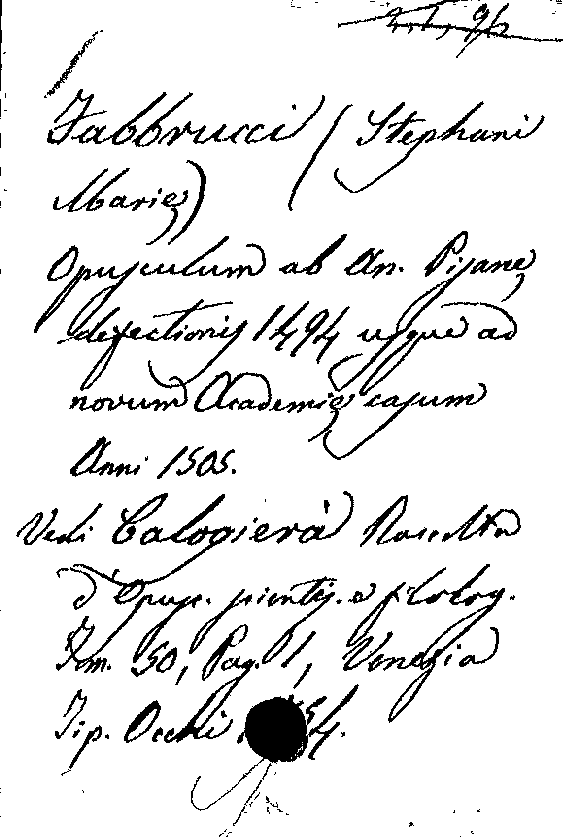 Fabbrucci (Stephani
Marię)
Opusculum ab An. Pisanę
defectionis 1494 usque ad
novum Academię casum
Anni 1505.
Vedi Calogierà Raccolta
d'Opusc. scientif. e filolog.
Tom. 50, Pag. 1, Venezia
Tip. Occhi